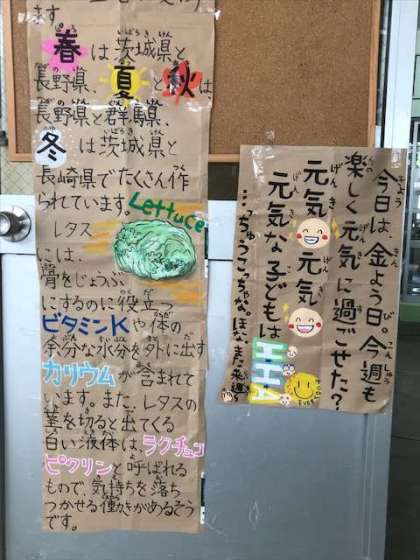 ます。
春は茨城県と
長野県、夏と秋は
長野県と群馬県、
冬は茨城県と
長崎県でたくさん作
られています。
Lettuce
レタス
には、
骨をじょうぶ
にするのに役立つ
ビタミンKや体の
余分な水分を外に出す
カリウムが含まれて
います。また、レタスの
茎を切ると出てくる
白い液体はラクチュコ
ピクリンと呼ばれる
もので、気持ちを落ち
つかせる働きがあるそう
です。
今日は、金よう日。今週も
楽しく元気に過ごせた？
元気元気
元気な子どもは
HHA
…ちゅうこっちゃな。ほなまた来週